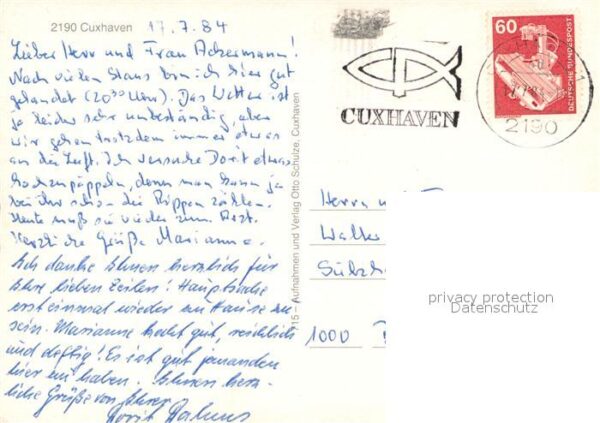 2190 Cuxhaven
17.7.84
Lieber Herr und Frau Ackermann!
Nach vielen Staus bin ich hier gut
gelandet (20³⁰ Uhr). Das Wetter ist
ja leider sehr unbeständig, aber
wir gehen trotzdem immer etwas
an die Luft. Ich versuche Dorit etwas
hochzupäppeln, denn man kann ja
bei ihr schon die Rippen zählen.
Heute muß sie wieder zum Arzt.
Herzliche Grüße Marianne.
Ich danke Ihnen herzlich für
Ihre lieben Zeilen! Hauptsache
erst einmal wieder zu Hause zu
sein. Marianne kocht gut, reichlich
und deftig! Es ist gut jemanden
hier zu haben. Ihnen herz-
liche Grüße von Ihrer
Dorit
715 – Aufnahmen und Verlag Otto Schulze, Cuxhaven
CUXHAVEN
60
DEUTSCHE BUNDESPOST
2190
Herrn
Walter
1000
privacy protection
Datenschutz